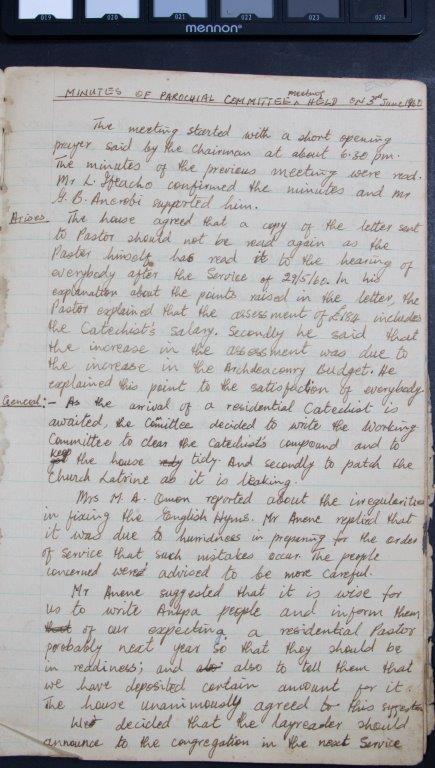 019 020 021 022 023 024
mennon
MINUTES OF PAROCHIAL COMMITTEE meeting HELD ON 3rd June 1960
The meeting started with a short opening
prayer said by the Chairman at about 6.30 pm.
The minutes of the previous meeting were read.
Mr L. confirmed the minutes and mr
B. supported him.
Arises The house agreed that a copy of the letter sent
to Pastor should not be read again as the
Pastor himself has read it to the hearing of
everybody after the Service of 29/5/60. In his
explanation about the points raised in the letter, the
Pastor explained that the assessment of includes
the Catechist's salary. Secondly he said that
the increase in the assessment was due to
the increase in the Archdeaconry Budget. He
explained this point to the satisfaction of everybody
General:- As the arrival of a residential Catechist is
awaited, the Comittee decided to write the Working
Committee to clear the Catechist's compound and to
keep the house tidy. And secondly to patch the
Church Latrine as it is leaking.
Mrs M. A. Owon reported about the irregularities
in fixing the English Hyms. Mr Anene replied that
it was due to hurridness in preparing for the order
of Service that such mistakes occur. The people
concerned were advised to be more careful.
Mr Anene suggested that it is wise for
us to write people and inform them
of our expecting a residential Pastor
probably next year so that they should be
in readiness; and also to tell them that
we have deposited certain amount for it.
The house unanimously agreed to this suggestion
We decided that the layreader should
announce to the congregation in the next Service